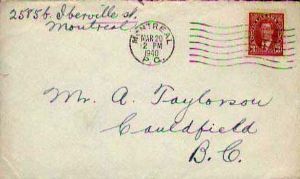 2585 b. Iberville st.
Montreal
MONTREAL
MAR 20
2 PM
1940
P.Q.
Mr. A. Taylorson
Cauldfield
B.C.